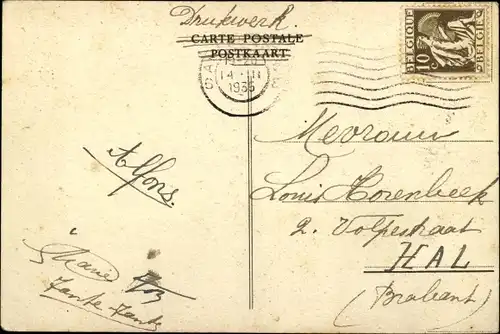 Drukwerk.
CARTE POSTALE
POSTKAART
BELGIQUE
BELGIË
10
14 · III
1935
Mevrouw
Louis Horenbeek
2. Volpestraat
HAL
(Brabant)
Alfons.
Marie
Tante